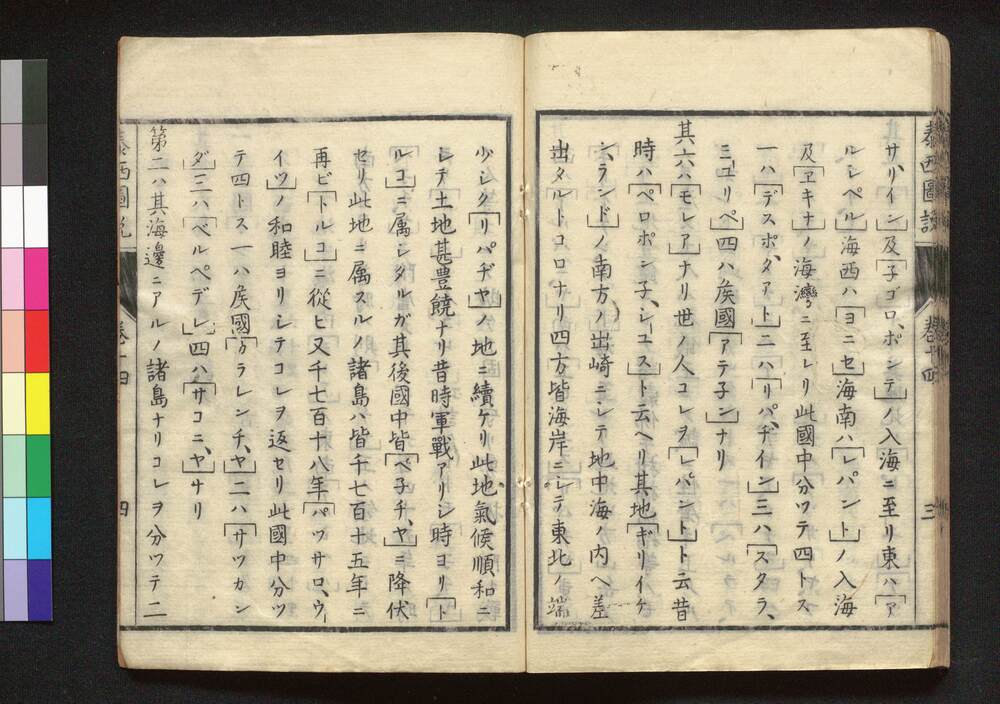 泰西圖説
巻十四
三
サ、リイン」及「子ゴロ、ポンテ」ノ入海ニ至リ東ハ「ア
ルシペル」海西ハ「ヨニセ」海南ハ「レパント」ノ入海
及「ヱキナ」ノ海灣ニ至レリ此國中分ツテ四トス
一ハ「デスポ、ダ、アト」二ハ「リパ、ヂイン」三ハ「スタラ、
ミユリペ」四ハ矦國「アテ子ン」ナリ
其六ハ「モレア」ナリ世ノ人コレヲ「レパント」ト云昔
時ハ「ペロポン子、シユスト」云ヘリ其地「ギリイケ
ン、ランド」ノ南方ノ出崎ニシテ地中海ノ内ヘ差
出タルトコロナリ四方皆海岸ニシテ東北ノ端
少シク「リパヂヤ」ノ地ニ續ケリ此地氣候順和ニ
シテ土地甚豊饒ナリ昔時軍戰アリシ時ヨリ「ト
ルコ」ニ属シタルガ其後國中皆「ベ子チ、ヤ」ニ降伏
セリ此地ニ属スルノ諸島ハ皆千七百十五年ニ
再ビ「トルコ」ニ從ヒ又千七百十八年「パツサロ、ウ、
イツ」ノ和睦ヨリシテコレヲ返セリ此國中分ツ
テ四トス一ハ矦國「カラレンチ、ヤ」二ハ「サツカン
ダ」三ハ「ベルペデレ」四ハ「サコニ、ヤ」ナリ
第二ハ其海邊ニアルノ諸島ナリコレヲ分ツテ二
泰西圖説
巻十四
四